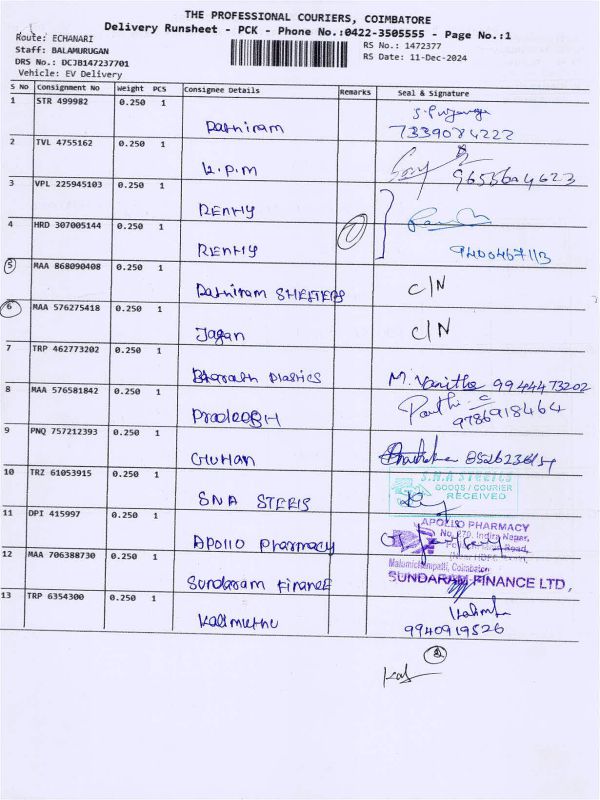 THE PROFESSIONAL COURIERS, COIMBATORE
Delivery Runsheet - PCK - Phone No.:0422-3505555 - Page No.:1
Route: ECHANARI
RS No.: 1472377
Staff: BALAMURUGAN
RS Date: 11-Dec-2024
DRS No.: DCJB147237701
Vehicle: EV Delivery
S No Consignment No Weight PCS Consignee Details Remarks Seal & Signature
1 STR 499982 0.250 1
7339084222
2 TVL 4755162 0.250 1 K.P.M
3 VPL 225945103 0.250 1 RENHY
4 HRD 307005144 0.250 1 RENHY
9400467113
5 MAA 868090408 0.250 1 SHELTERS C/N
6 MAA 576275418 0.250 1 Jagan C/N
7 TRP 462773202 0.250 1 Bharath Plastics M. Vanitha 9944473202
8 MAA 576581842 0.250 1
9786918464
9 PNQ 757212393 0.250 1 GUHAN
10 TRZ 61053915 0.250 1 SNA STEELS
S.N.A STEELS
GOODS / COURIER
RECEIVED
11 DPI 415997 0.250 1 APOLLO Pharmacy
APOLLO PHARMACY
No. 279, Indira Nagar,
Road,
Malumichampatti, Coimbatore
12 MAA 706388730 0.250 1 Sundaram Finance
SUNDARAM FINANCE LTD,
13 TRP 6354300 0.250 1 Kalimuthu
9940919526